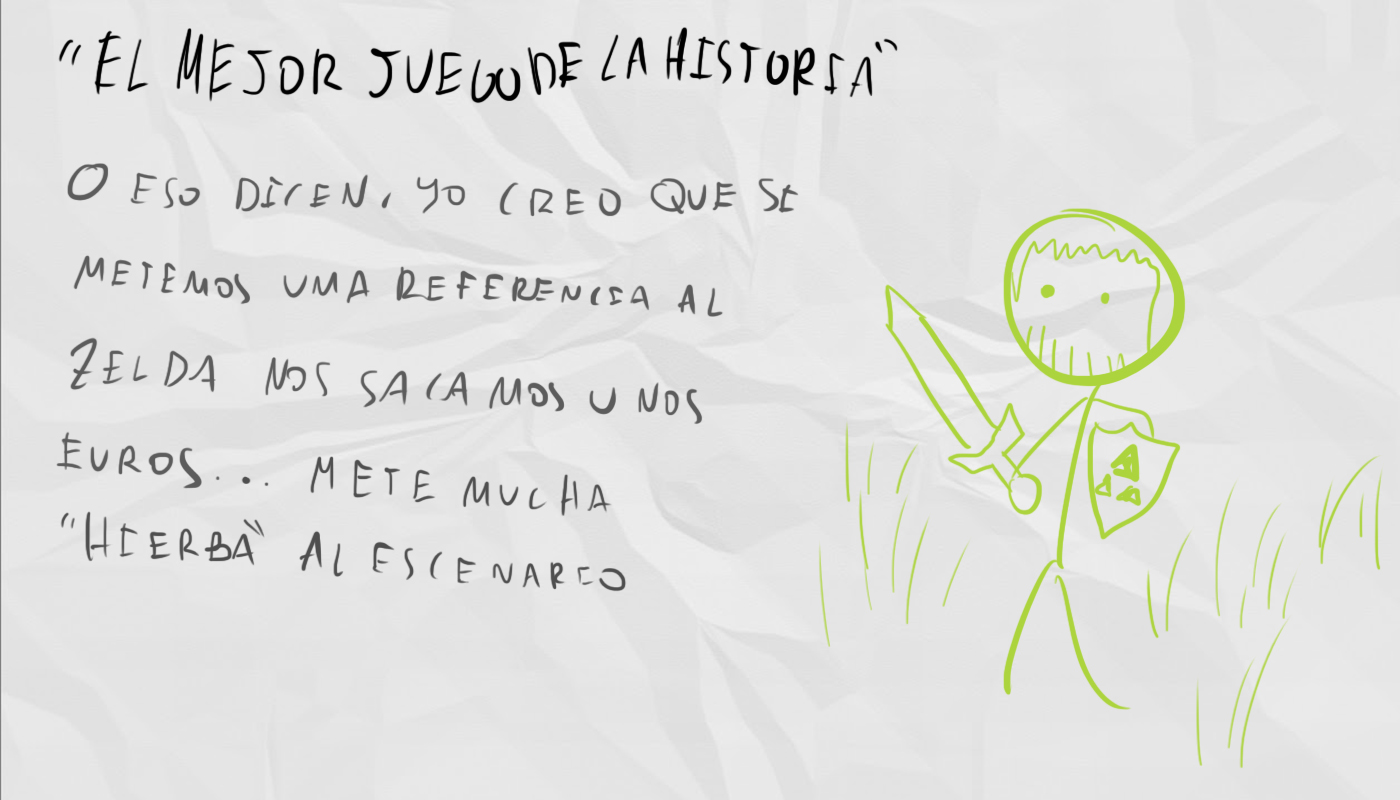 "EL MEJOR JUEGO DE LA HISTORIA"
O ESO DICEN, YO CREO QUE SI
METEMOS UMA REFERENCIA AL
ZELDA NOS SACAMOS UNOS
EUROS... METE MUCHA
"HIERBA" AL ESCENARIO